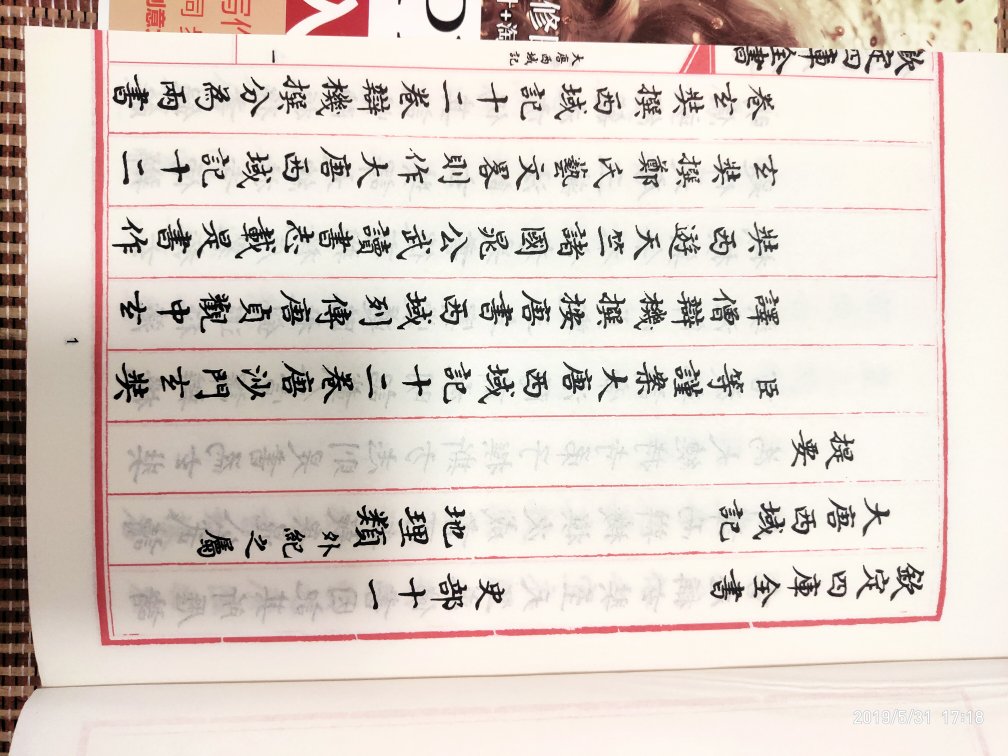 欽定四庫全書 史部十一
大唐西域記 地理類 外紀之屬
提要
臣等謹案大唐西域記十二卷唐沙門玄奘
譯僧辯機撰按唐書西域列傳唐貞觀中玄
奘西遊天竺諸國晁公武讀書志載是書作
玄奘撰鄭氏藝文畧則作大唐西域記十二
卷玄奘撰西域記十二卷辯機撰分為兩書
欽定四庫全書
大唐西域記
一
1
2019/5/31 17:18